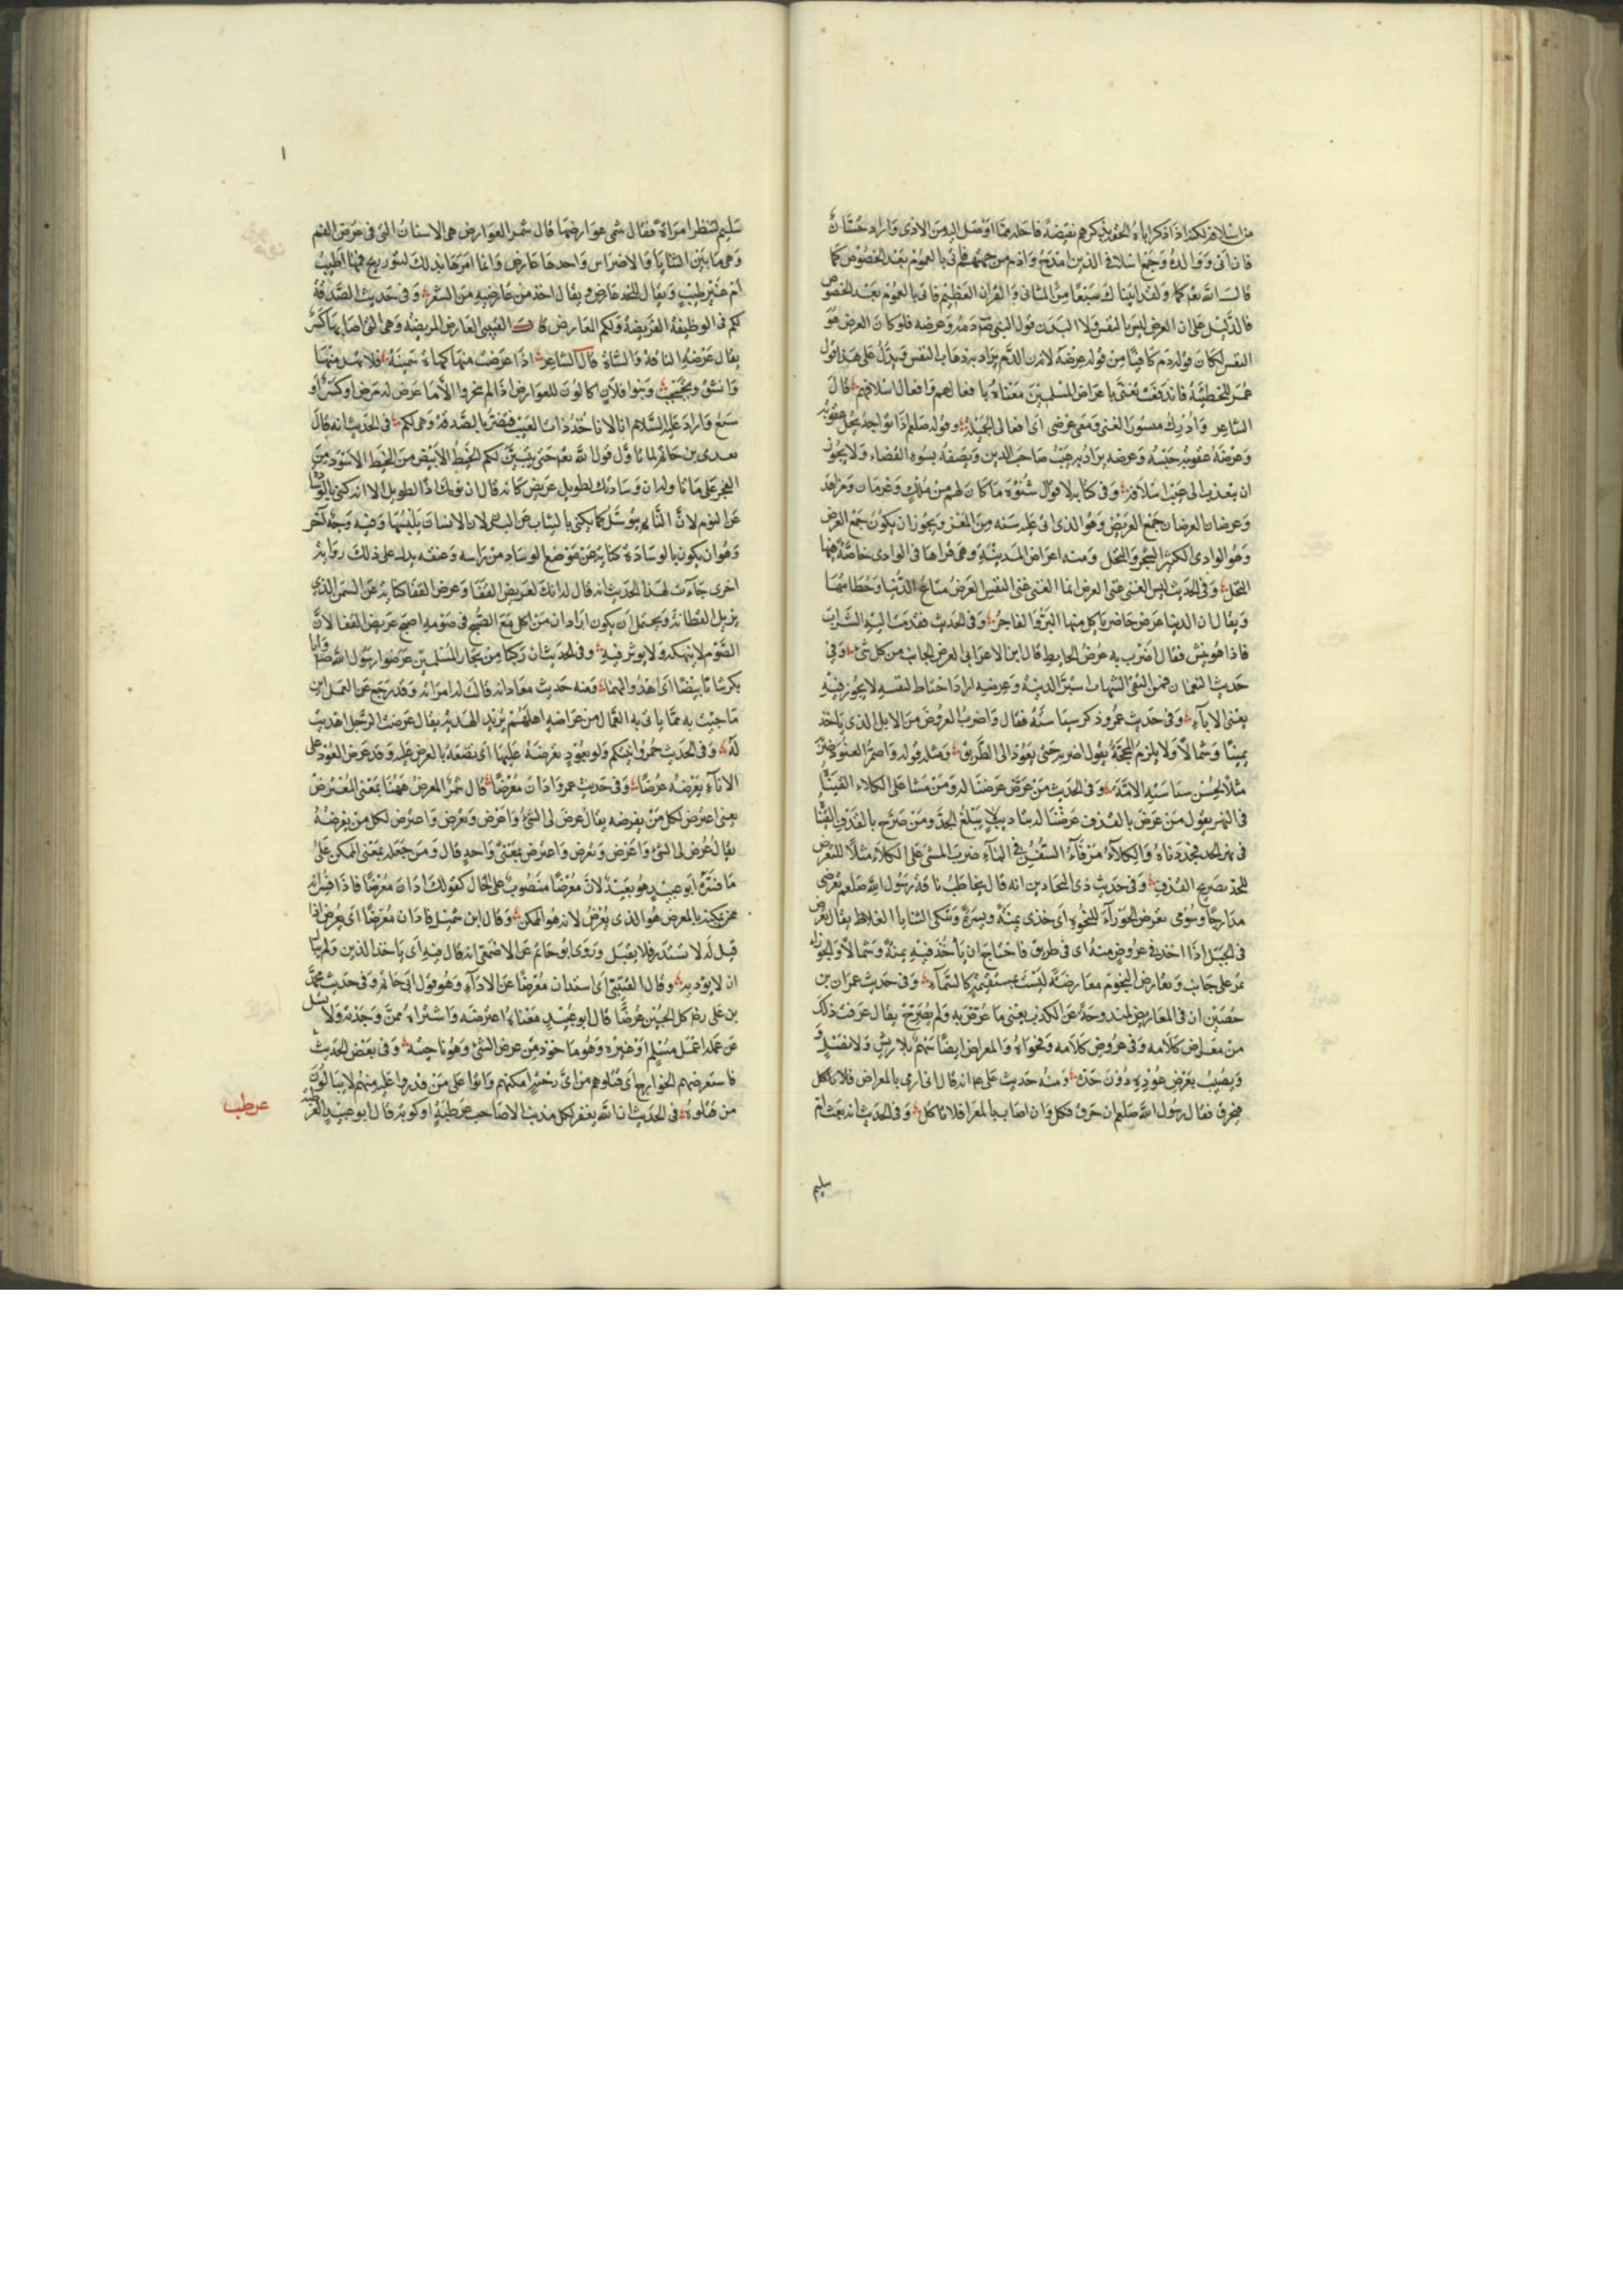 من اسلافه نكله اذا ذكر اباه لحقته بذكرهم نقيصة فاحله مما اوصل اليه من الاذى واراد حسان
فان ابى ووالده وجمع اسلافى الذين امدح واذم من جهتهم فاتى بالعموم بعد الخصوص كما
قال الله تعالى ولقد اتيناك سبعا من المثانى والقرآن العظيم فاتى بالعموم بعد الخصوص
فالدليل على ان العرض ليس بالنفس ولا البدن قول النبى صلعم دمه وعرضه فلو كان العرض هو
النفس لكان قوله دم كافيا من قوله عرضه لان الدم يراد به ذهاب النفس ويدل على هذا قول
عمر للحطيئة فاندفعت تغنى باعراض المسلمين معناه بافعالهم وافعال اسلافهم قال
الشاعر وادرك ميسور الغنى ومعى عرضى اى افعالى الجميلة وقوله صلعم لى الواجد يحل عقوبته
وعرضه عقوبته حبسه وعرضه يراد به عيب صاحب الدين ويصفه بسوء القضاء ولا يجوز
ان يتعد به الى عيب اسلافه وفى كتابه لاقوال شنوءة ما كان لهم من ملك وعرمان ومزاهر
وعرضان العرضان جمع العريض وهو الذى اتى عليه سنة من المعز ويجوز ان يكون جمع العرض
وهو الوادى الكثير الشجر والنخل ومنه اعراض المدينة وهى قراها فى الوادى خاصة فيها
النخل وفى الحديث ليس الغنى عن العرض انما الغنى غنى النفس العرض متاع الدنيا وحطامها
ويقال ان الدنيا عرض حاضر ياكل منها البر والفاجر وفى الحديث فقدمت اليه الشراب
فاذا هو ينش فقال اضرب به عرض الحايط قال ابن الاعرابى العرض الجانب من كل شئ وفى
حديث النعمان فمن اتقى الشبهات استبرأ لدينه وعرضه اراد احتاط لنفسه لا يجوز فيه
يعنى الاباء وفى حديث عمرو ذكر سياسته فقال واضرب العروض من الابل الذى ياخذ
يمينا وشمالا ولا يلزم المحجة يقول اضربه حتى يعود الى الطريق ومثله قوله واضم العنود ضربه
مثلا لحسن سياسته الامة وفى الحديث من عرض عرضنا له ومن مشا على الكلاء القيناه
فى النهر يقول من عرض بالقذف عرضنا له بتاديب لا يبلغ الحد ومن صرح بالقذف القيناه
فى نهر الحد فحددناه والكلاء مرفأ السفن فى الماء ضرب المشى على الكلاء مثلا للتعرض
للحد بصريح القذف وفى حديث ذى البجادين انه قال يخاطب ناقة رسول الله صلعم تعرضى
مدارجا وسومى تعرض الجوزاء للنجوم اى خذى يمنة ويسرة وتنكبى الثنايا الغلاظ يقال تعرض
فى الجبل اذا اخذ فى عروض منه اى فى طريق فاحتاج ان يأخذ فيه يمنة وشمالا والجوزاء
تمر على جانب وتعارض النجوم معارضة ليست بمستقيمة فى السماء وفى حديث عمران بن
حصين ان فى المعاريض لمندوحة عن الكذب يعنى ما عرض به ولم يصرح يقال عرفت ذلك
من معراض كلامه وفى عروض كلامه وفحواه والمعراض ايضا سهم بلا ريش ولا نصل و
ويصيب بعرض عوده دون حده ومنه حديث عدى انه قال انى ارمى بالمعراض فلا ناكل
فيخزق فقال رسول الله صلعم ان خرق فكل وان اصاب بالمعراض فلا تاكل وفى الحديث انه بعث ام
سليم
سليم لتنظر امرأة فقال شمى عوارضها قال شمر العوارض هى الاسنان التى فى عرض الفم
وهى ما بين الثنايا والاضراس واحدها عارض وانما امرها بذلك لتبور ريح فمها اطيب
ام غير طيب ويقال للخد عارض ويقال اخذ من عارضيه من الشعر وفى حديث الصدقة
لكم فى الوظيفة الفريضة ولكم العارض قال القتيبى العارض المريضة وهى التى اصابها كسر
يقال عرضت الناقة والشاة قال الشاعر اذا عرضت منها كهاة سمينة فلا تهد منها
واتشق وتجبجب وبنو فلان اكالون للعوارض اذا لم ينحروا الا ما عرض له مرض او كسر او
سبع واراد عليه السلام انا لا ناخذ ذات العيب فيضر بالصدقة وهى لكم فى الحديث انه قال
لعدى بن حاتم لما تأول قول الله تعالى حتى يتبين لكم الخيط الابيض من الخيط الاسود من
الفجر على ما تاوله ان وسادك لطويل عريض كانه قال ان نومك اذا لطويل الا انه كنى بالوساد
عن النوم لان النائم يتوسد كما يكنى بالثياب عن البدن لان الانسان يلبسها وفيه وجه آخر
وهو ان يكون بالوسادة كناية عن موضع الوساد من راسه وعنقه يدل على ذلك رواية
اخرى جاءت لهذا الحديث انه قال له انك لعريض القفا وعرض القفا كناية عن السمن الذى
يزيل الفطانة ويحتمل ان يكون اراد ان من اكل مع الصبح فى صومه اصبح عريض القفا لان
الصوم لا ينهكه ولا يؤثر فيه وفى الحديث ان ركبا من تجار المسلمين عرضوا رسول الله صلعم وابا
بكر ثيابا بيضا اى اهدوا لهما ومنه حديث معاذ انه قالت له امرأته وقد رجع عن العمل اين
ما جئت به مما ياتى به العمال من عراضة اهلهم يريد الهدية يقال عرضت الرجل اهديت
له وفى الحديث خمروا آنيتكم ولو بعود تعرضه عليها اى تضعه بالعرض عليه وقد عرض العود على
الاناء يعرضه عرضا وفى حديث عمر فادان معرضا قال شمر المعرض ههنا بمعنى المعترض
يعنى اعترض لكل من يقرضه يقال عرض لى الشئ واعرض وتعرض واعترض لكل من يعرضه
يقال عرض لى الشئ واعرض وتعرض واعترض بمعنى واحد قال ومن جعله بمعنى الممكن على
ما فسره ابو عبيد فهو بعيد لان معرضا منصوب على الحال كقولك ادان معرضا فاذا فسر انه
ممن يمكنه فالمعرض هو الذى يعرض لانه هو الممكن وقال ابن شميل فادان معرضا اى يعرض اذا
قيل له لا تستدن فلا يقبل وروى ابو حاتم عن الاصمعى انه قال فيه اى ياخذ الدين ولم يبال
ان لا يؤديه وقال القتيبى اى استدان معرضا عن الاداء وهو قول ابى حاتم وفى حديث محمد
بن على رضه كل الجبن عرضا قال ابو عبيد معناه اعترضه واشتراه ممن وجدته ولا تسل
عن عمله اعمل مسلم او غيره وهو ماخوذ من عرض الشئ وهو ناحيته وفى بعض الحديث
فاستعرضهم الخوارج اى قتلوهم من اى وجه امكنهم واتوا على من قدروا عليه منهم لا يبالون
من قتلوه فى الحديث ان الله يغفر لكل مذنب الا صاحب عرطبة او كوبة قال ابو عبيد العرطبة
عرطب